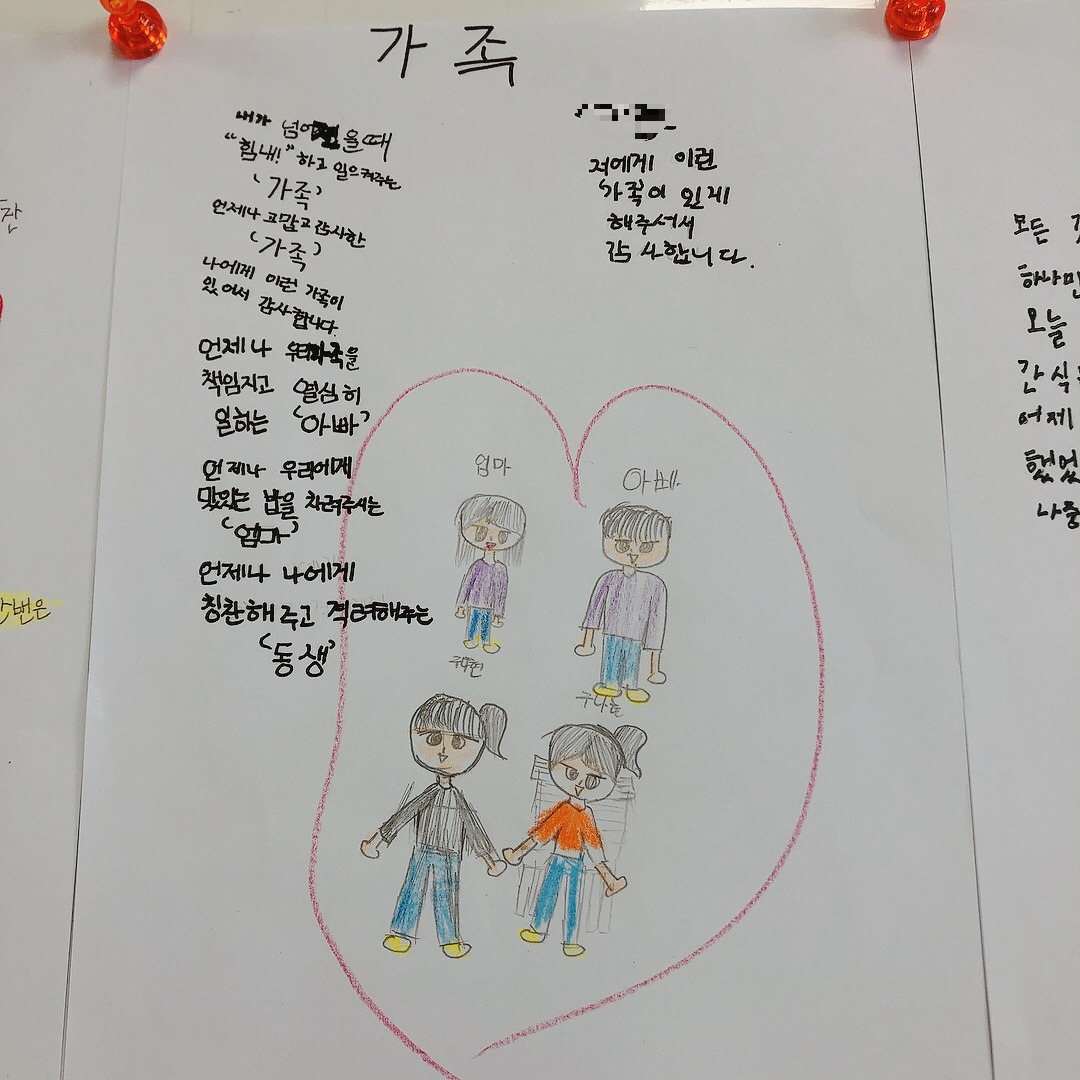 가족
내가 넘어졌을때
"힘내!" 하고 일으켜주는
'가족'
언제나 고맙고 감사한
'가족'
나에게 이런 가족이
있어서 감사합니다.
언제나 우리가족을
책임지고 열심히
일하는 '아빠'
언제나 우리에게
맛있는 밥을 차려주시는
'엄마'
언제나 나에게
칭찬해주고 격려해주는
'동생'
저에게 이런
가족이 있게
해주셔서
감사합니다.
엄마
아빠
모든
하나만
오늘
간식
어제
했었
나중
한번은